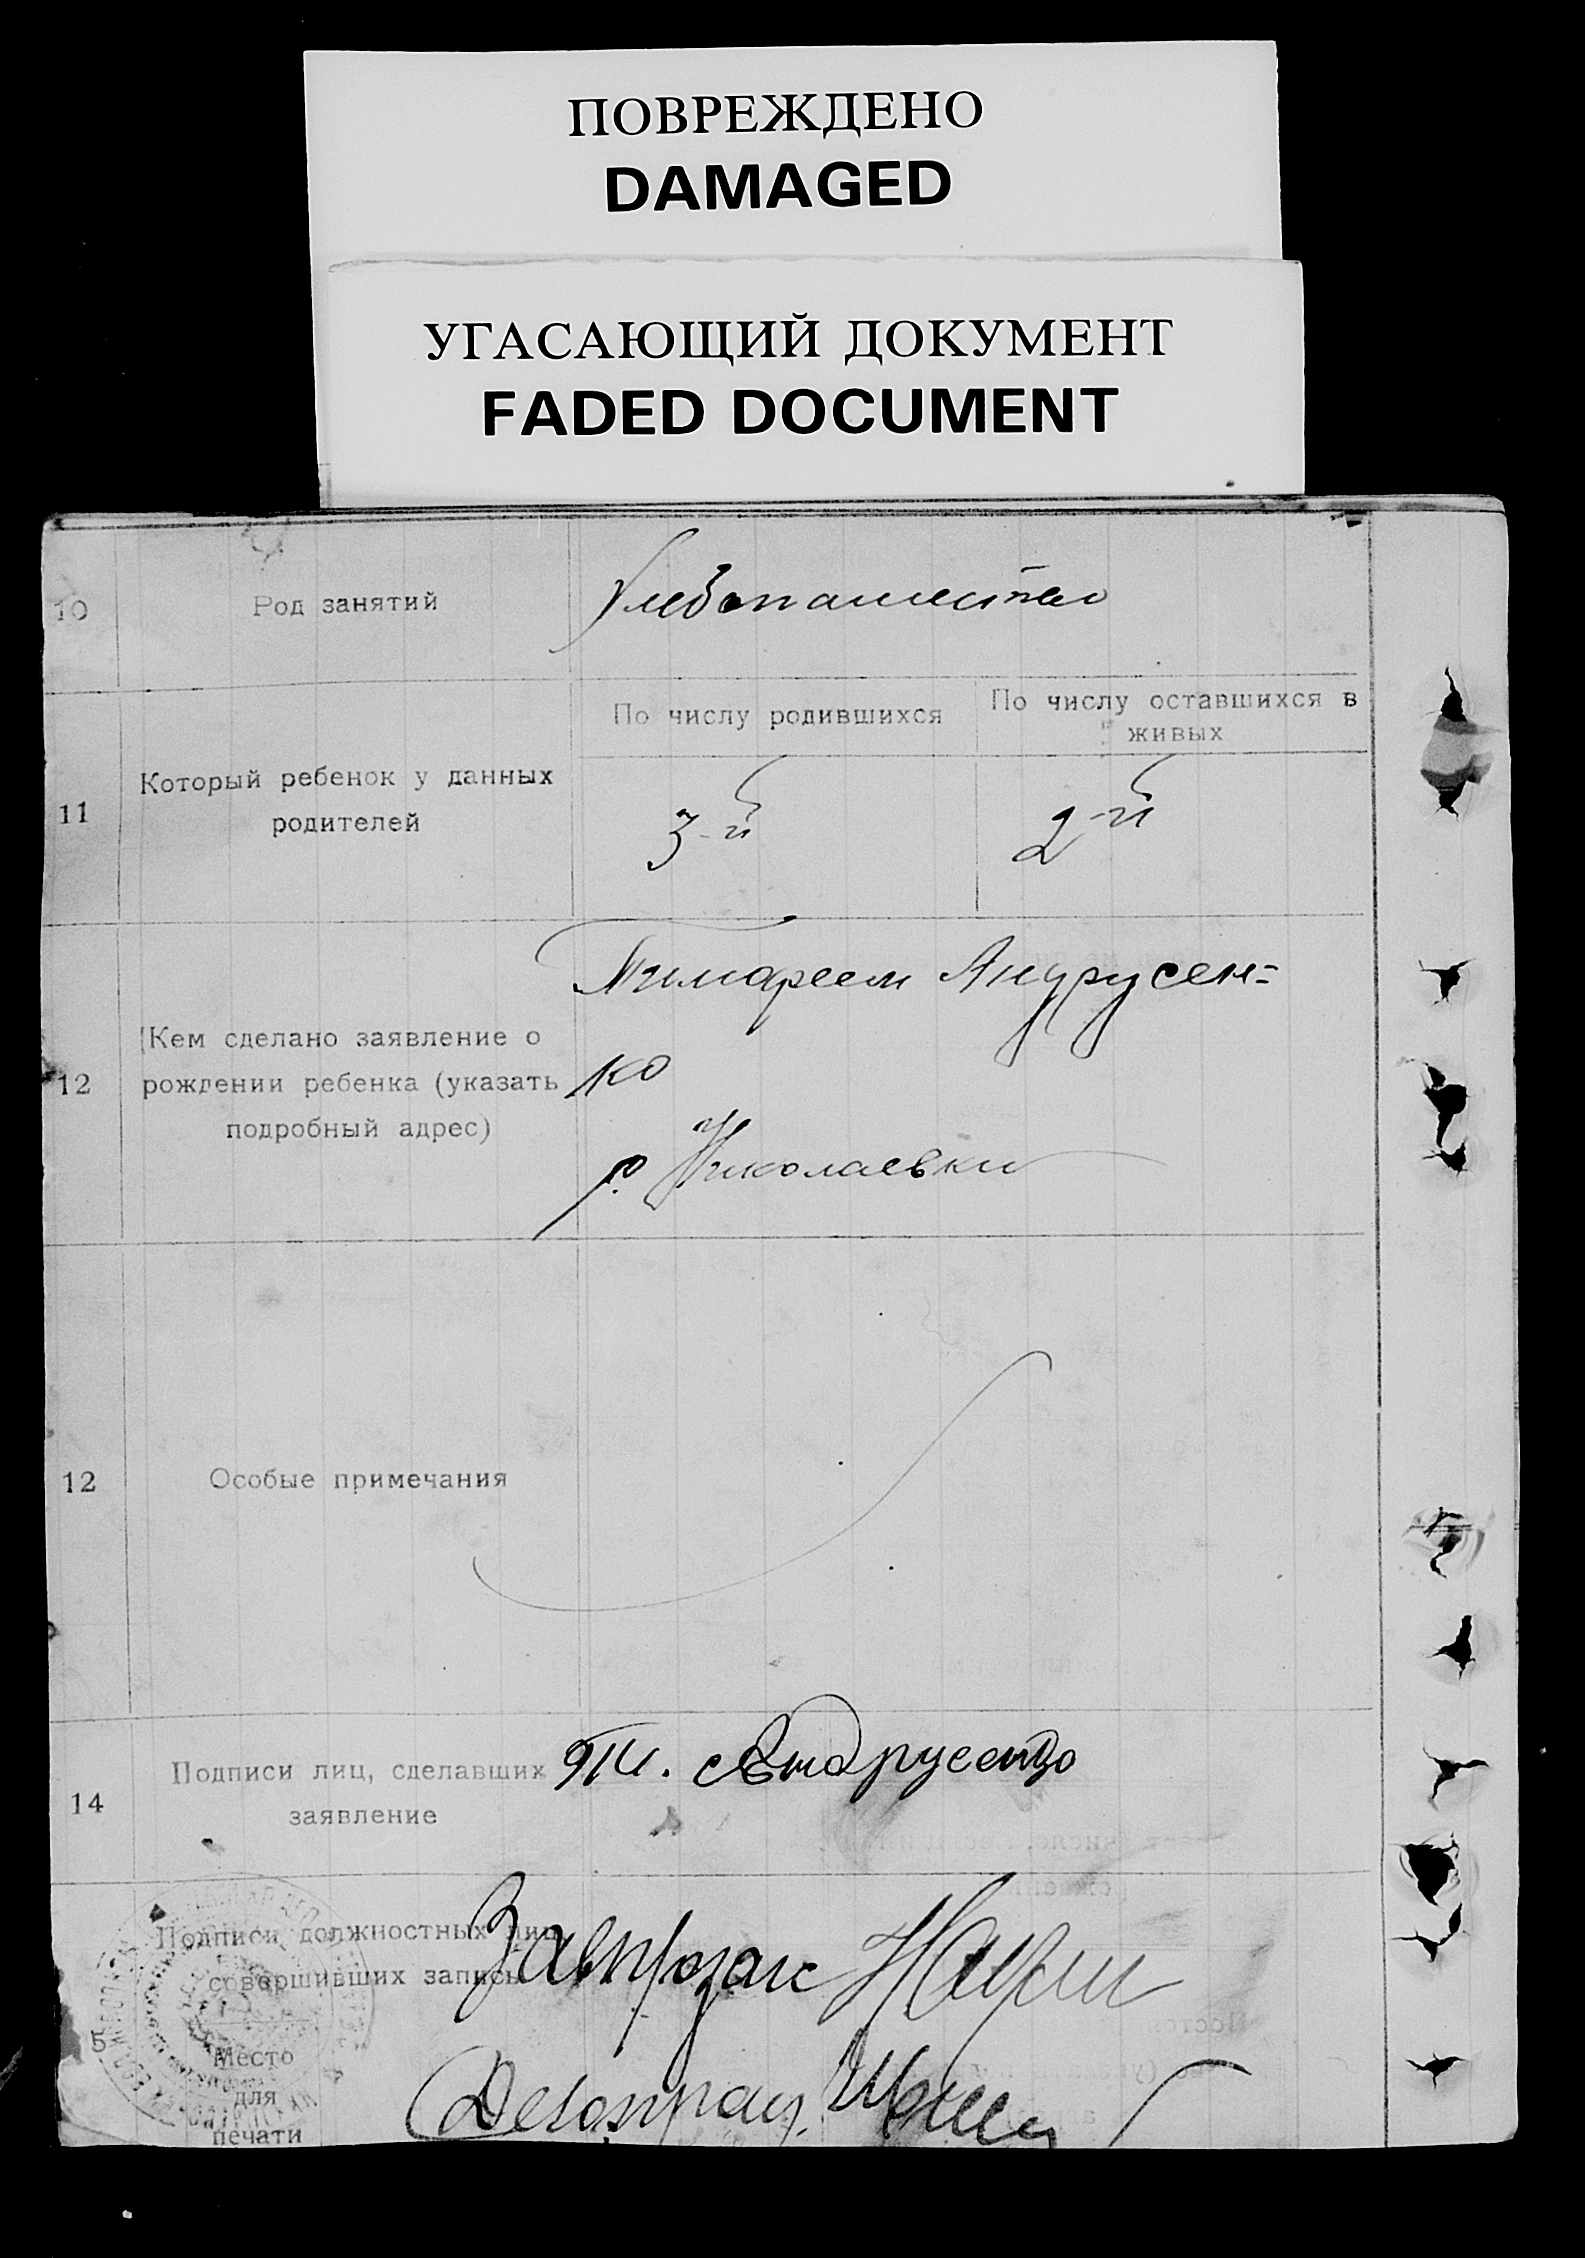 ПОВРЕЖДЕНО
DAMAGED
УГАСАЮЩИЙ ДОКУМЕНТ
FADED DOCUMENT
10 Род занятий Хлебопашество
По числу родившихся По числу оставшихся в
живых
11 Который ребенок у данных
родителей 3-й 2-й
Тимофеем Андрусен=
ко
12 Кем сделано заявление о
рождении ребенка (указать
подробный адрес)
р. Николаевки
12 Особые примечания
14 Подписи лиц, сделавших
заявление
Андрусенко
Подписи должностных лиц
совершивших запись
Завпрзагс
5 Место
для
печати
Делопроиз.